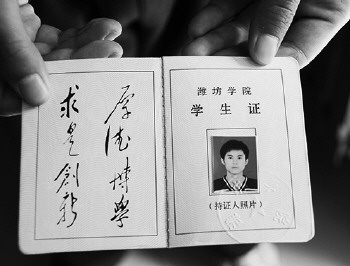 厚德博学
求是创新
潍坊学院
学生证
（持证人照片）